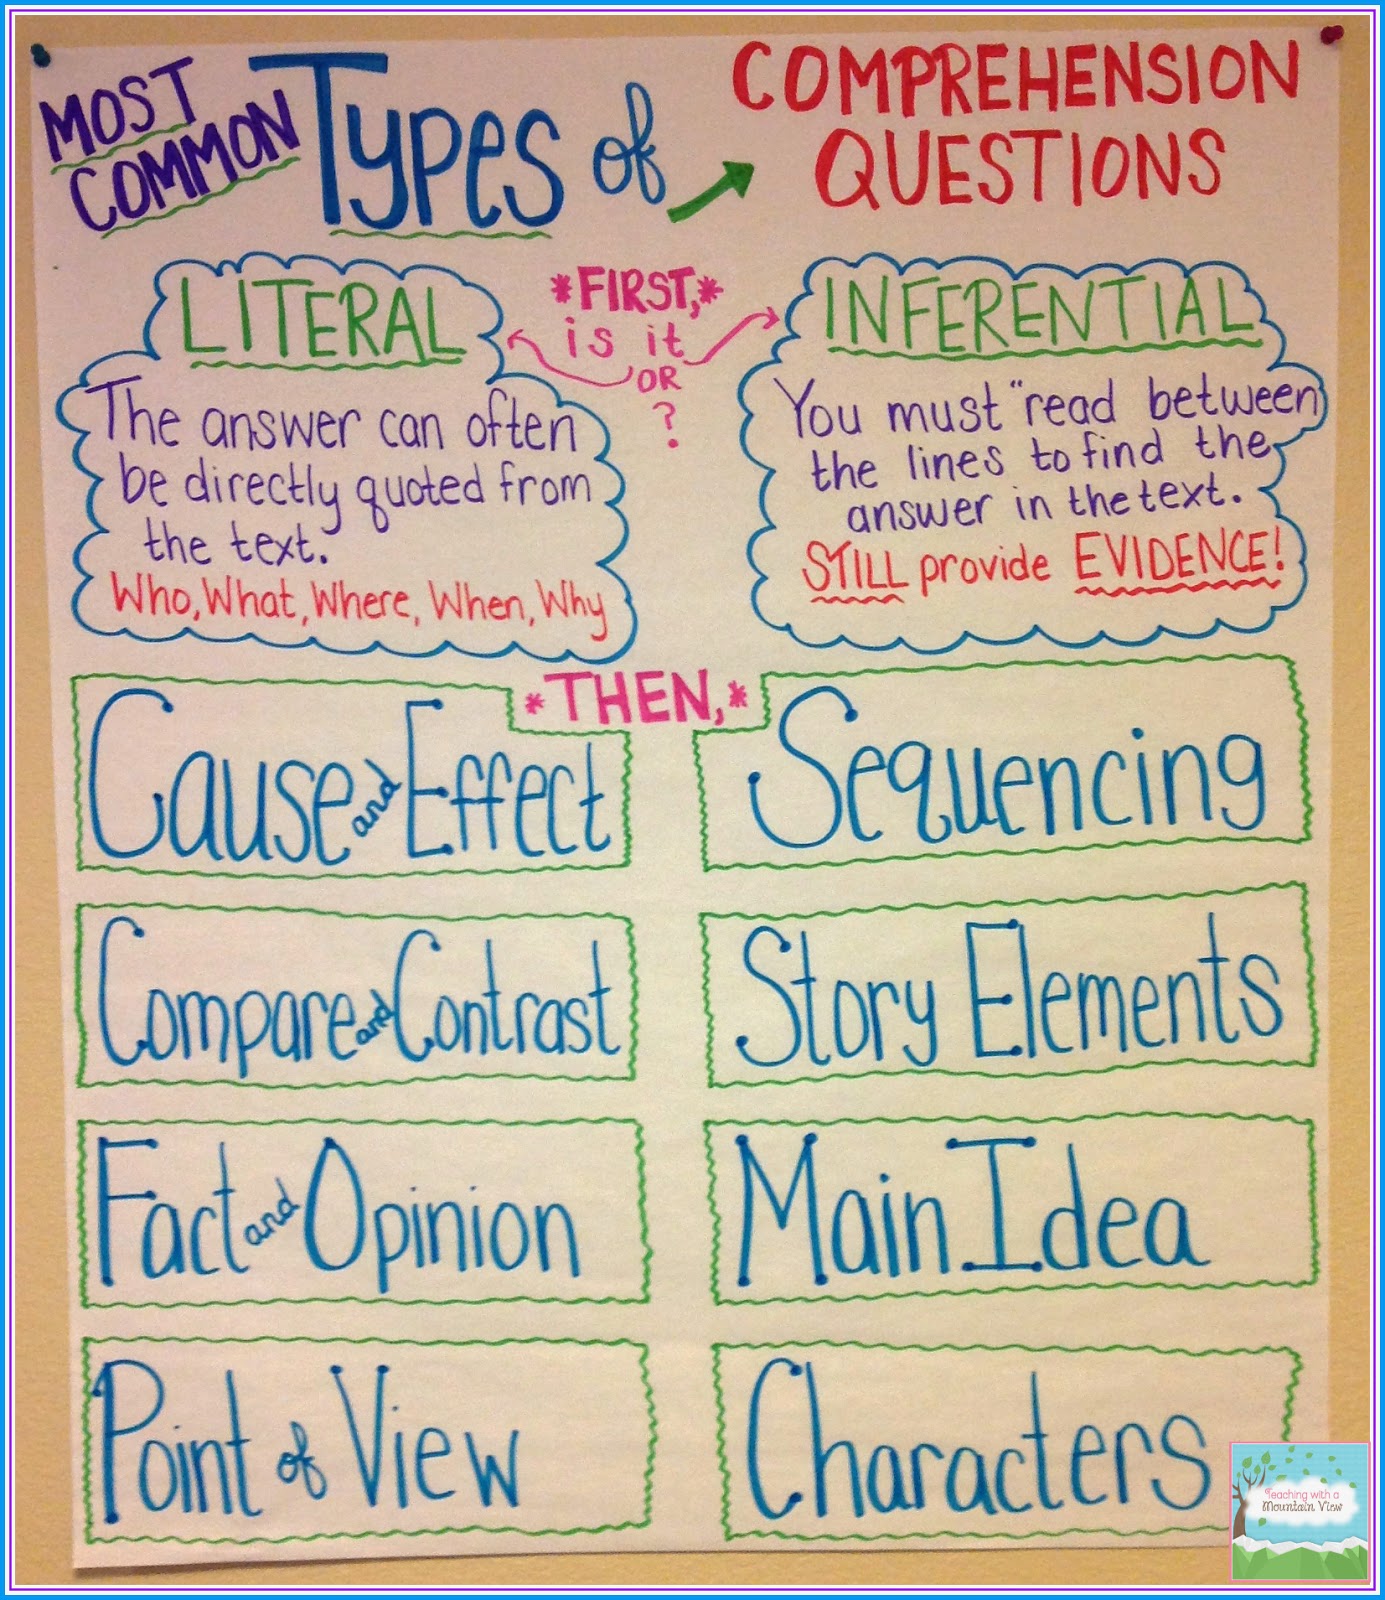 MOST
COMMON
TYPES of
COMPREHENSION
QUESTIONS
LITERAL
The answer can often
be directly quoted from
the text.
Who, What, Where, When, Why
*FIRST,*
is it
OR
?
INFERENTIAL
You must "read between
the lines to find the
answer in the text.
STILL provide EVIDENCE!
*THEN,*
Cause and Effect
Sequencing
Compare and Contrast
Story Elements
Fact and Opinion
Main Idea
Point of View
Characters
Teaching with a
Mountain View